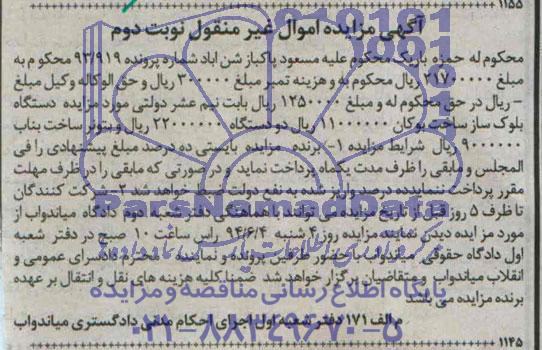 ۱۱۵۵
آگهی مزایده اموال غیر منقول نوبت دوم
محکوم له حمزه باریک محکوم علیه مسعود پاکباز شن اباد شماره پرونده ۹۳/۹۱۹ محکوم به
مبلغ ۲۱۷۰۰۰۰۰ ریال محکوم به و هزینه تمبر مبلغ ۳۰۰۰۰۰ ریال و حق الوکاله وکیل مبلغ
- ریال در حق محکوم له و مبلغ ۱۲۵۰۰۰۰ ریال بابت نیم عشر دولتی مورد مزایده دستگاه
بلوک ساز ساخت بوکان ۱۱۰۰۰۰۰۰ ریال دو دستگاه ۲۲۰۰۰۰۰۰ ریال و بتونر ساخت بناب
۹۰۰۰۰۰۰ ریال شرایط مزایده ۱- برنده مزایده بایستی ده درصد مبلغ پیشنهادی را فی
المجلس و مابقی را ظرف مدت یکماه پرداخت نماید و در صورتی که مابقی را در ظرف مهلت
مقرر پرداخت ننمایدده درصد واریز شده به نفع دولت ضبط خواهد شد ۲- شرکت کنندگان
تا ظرف ۵ روز قبل از تاریخ مزایده می توانند با هماهنگی دفتر شعبه دوم دادگاه میاندواب از
مورد مزایده دیدن نمایند مزایده روز ۴ شنبه ۹۴/۶/۴ راس ساعت ۱۰ صبح در دفتر شعبه
اول دادگاه حقوقی میاندواب با حضور طرفین پرونده و نماینده محترم دادسرای عمومی و
انقلاب میاندواب و متقاضیان برگزار خواهد شد ضمنا کلیه هزینه های نقل و انتقال بر عهده
برنده مزایده می باشد
م الف ۱۷۱ دفتر شعبه اول اجرای احکام مدنی دادگستری میاندواب
۱۱۴۵
ParsNamadData
پایگاه اطلاع رسانی مناقصه و مزایده
۰۲۱-۸۸۳۴۹۶۷۰-۵